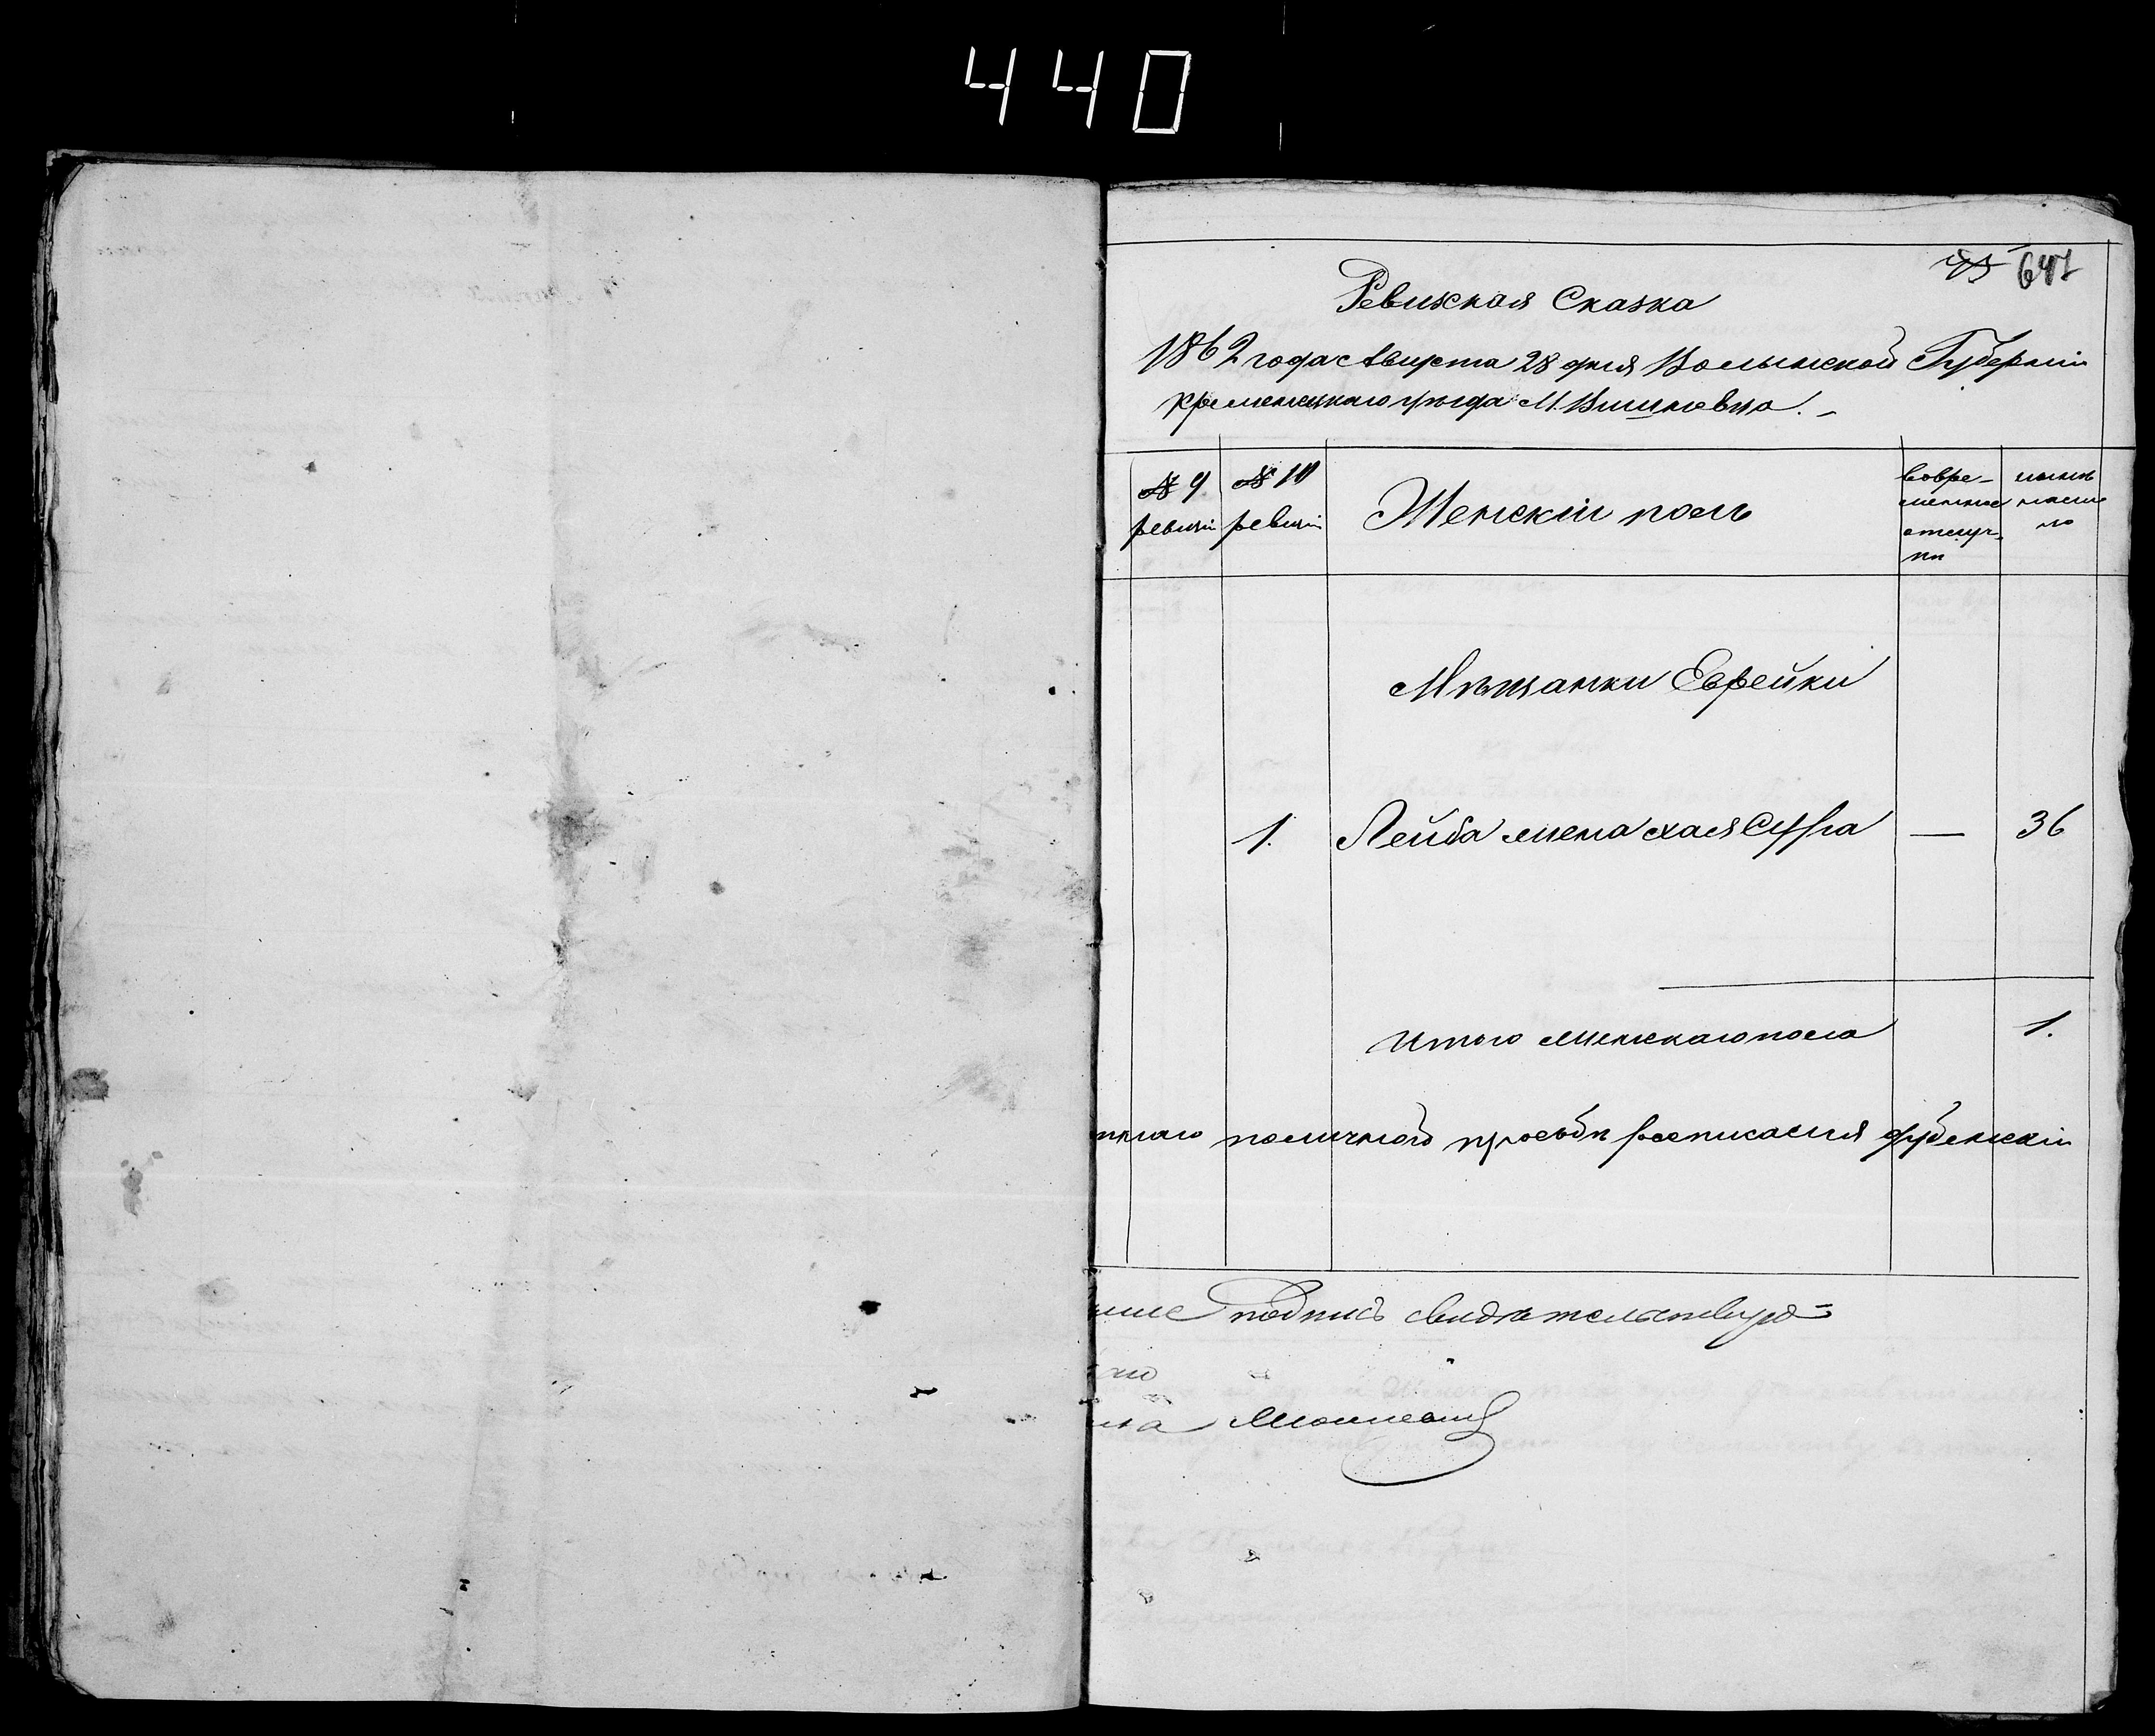 440
641
Ревизская Сказка
1862 года Августа 28 дня Волынской Губерніи
Кременецкаго уѣзда М. Вишневца. –
№ 9 ревизіи
№ 10 ревизіи
Женскій полъ
вовре-
менно
отлуч-
ки
нынѣ
налицо
Мѣщанки Еврейки
1. Лейба жена Хая Сура — 36
Итого женскаго пола 1.
по личной прозьбѣ росписался Дубенскій
подпись свидѣтельствую